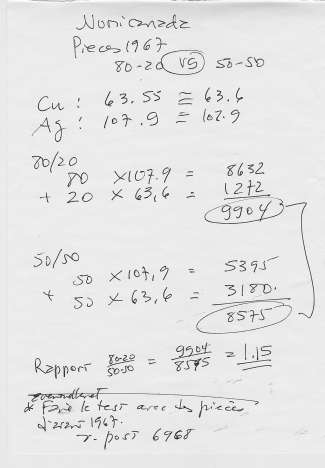 Numicanada
Pieces 1967
80-20 VS 50-50
Cu : 63.55 ≅ 63.6
Ag : 107.9 = 107.9
80/20
80 × 107.9 = 8632
+ 20 × 63,6 = 1272
9904
50/50
50 × 107,9 = 5395
+ 50 × 63,6 = 3180.
8575
Rapport 80-20/50-50 = 9904/8575 = 1.15
* Faire le test avec des pieces
d'avant 1967.
r. post 6968